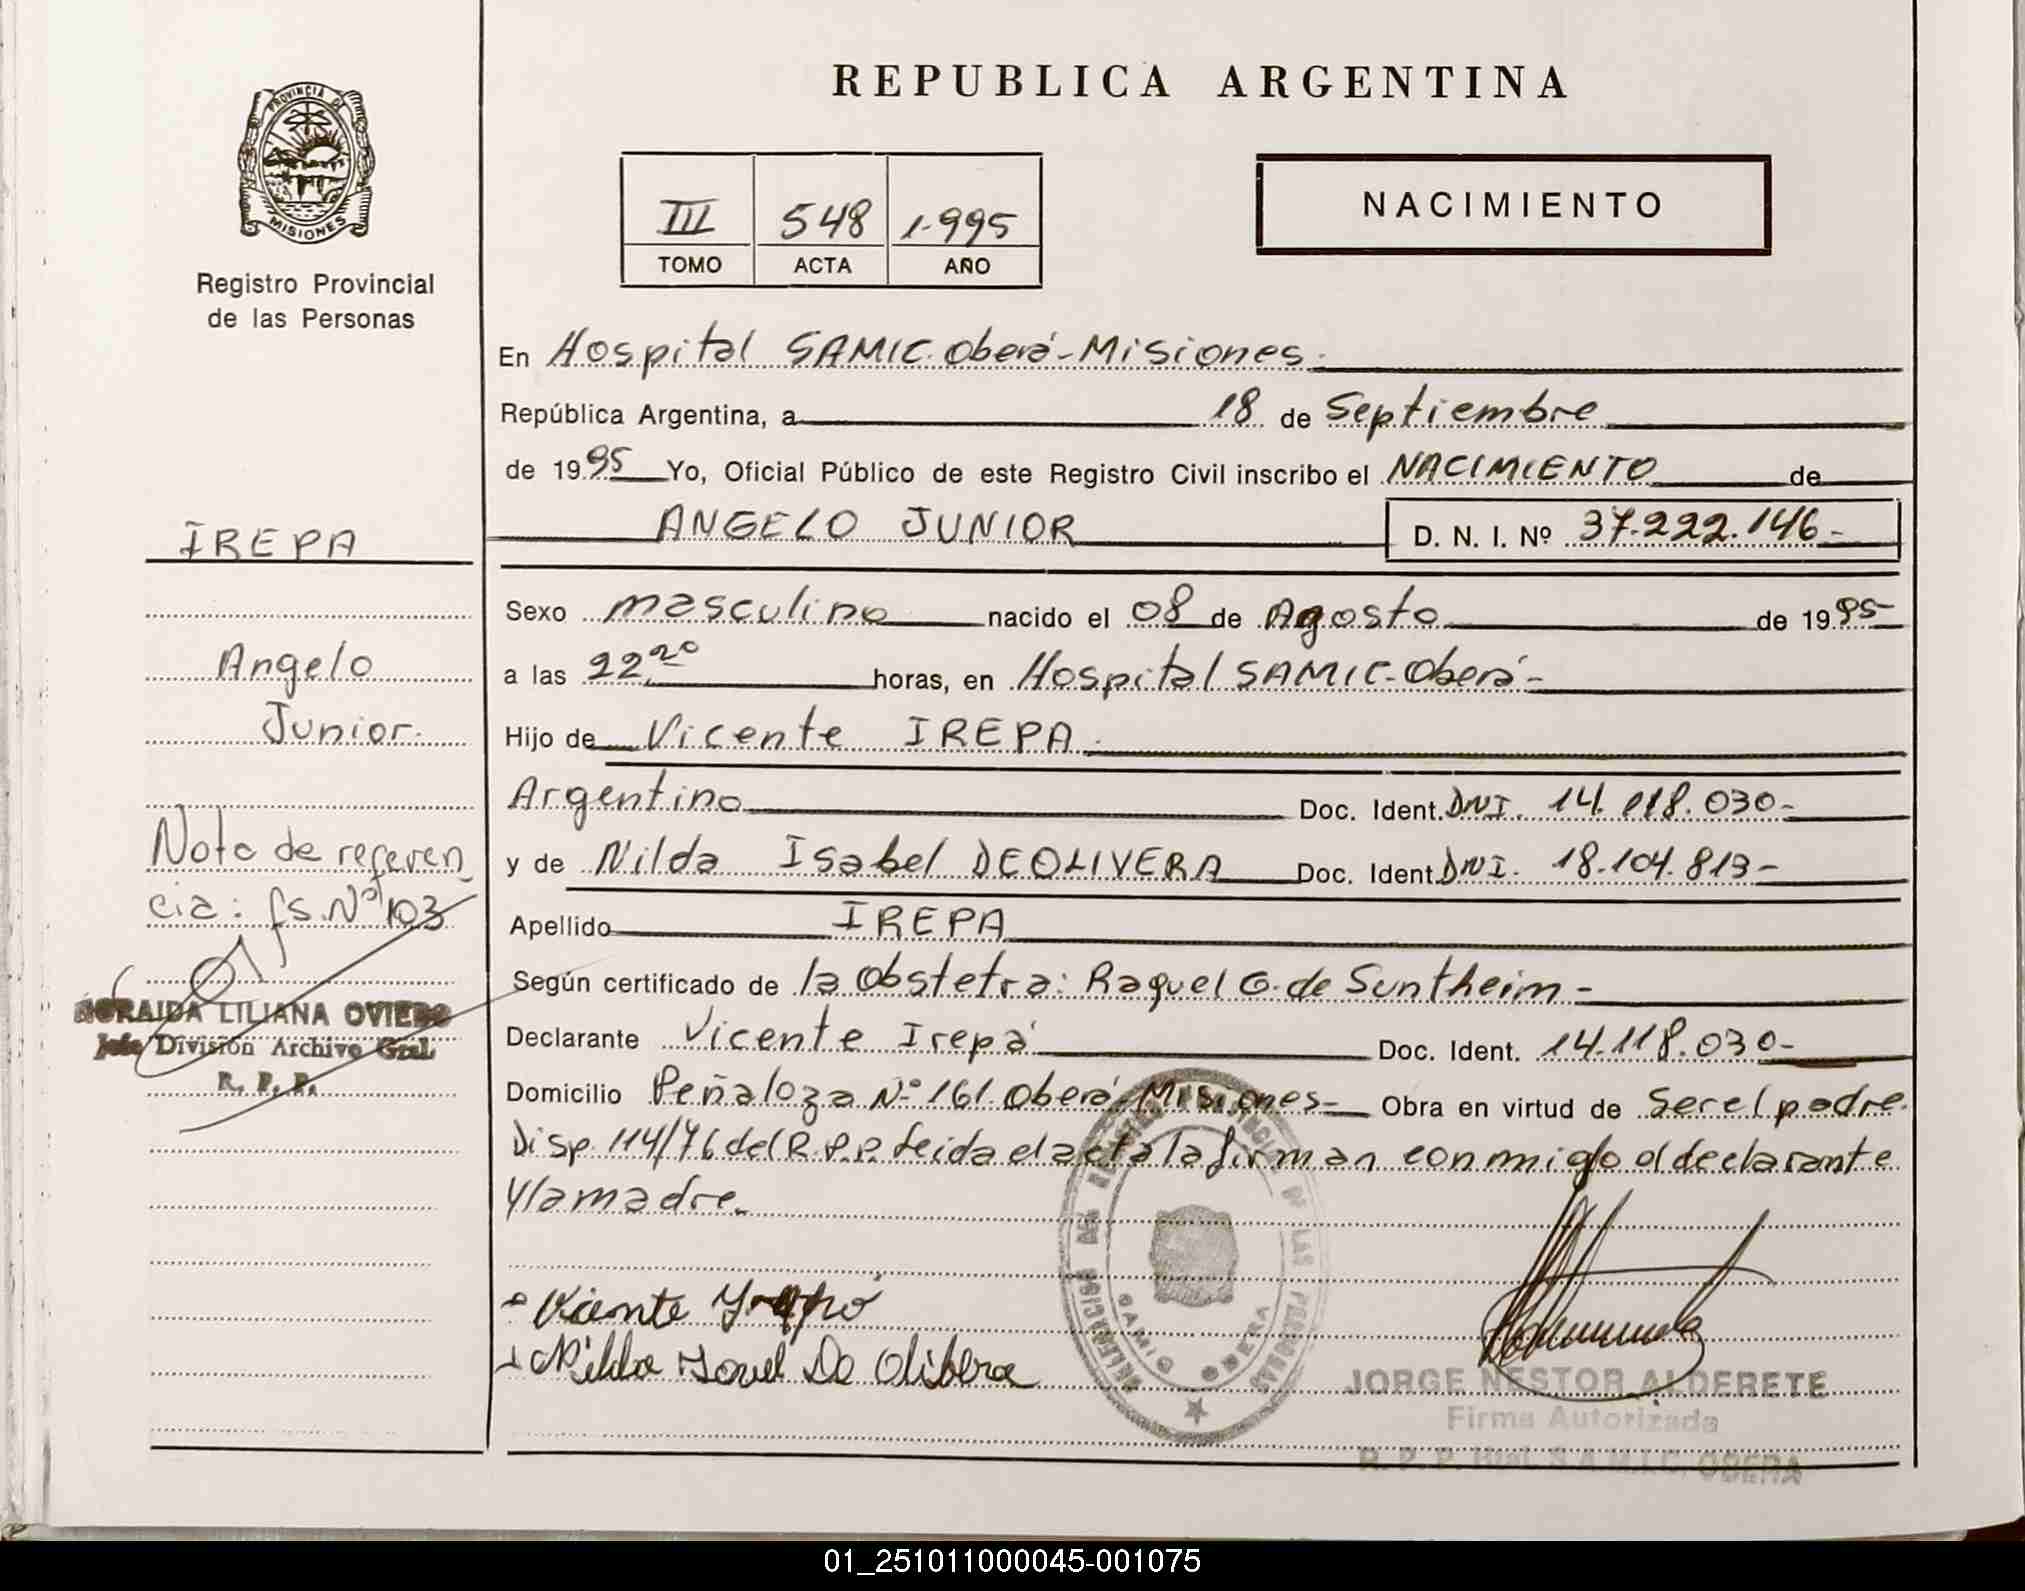 REPUBLICA ARGENTINA
PROVINCIA DE
MISIONES
Registro Provincial
de las Personas
III 548 1.995
TOMO ACTA AÑO
NACIMIENTO
En Hospital SAMIC. Oberá-Misiones.
República Argentina, a 18 de Septiembre
de 1995 Yo, Oficial Público de este Registro Civil inscribo el NACIMIENTO de
ANGELO JUNIOR D. N. I. Nº 37.222.146-
Sexo masculino nacido el 08 de Agosto de 1995-
a las 22,20 horas, en Hospital SAMIC-Oberá-
Hijo de Vicente IREPA.
Argentino Doc. Ident. DNI. 14.118.030-
y de Nilda Isabel DEOLIVERA Doc. Ident. DNI. 18.104.813-
Apellido IREPA
Según certificado de la Obstetra: Raquel G. de Suntheim-
Declarante Vicente Irepá Doc. Ident. 14.118.030-
Domicilio Peñaloza Nº 161. Oberá-Misiones- Obra en virtud de Ser el padre.
Disp. 114/76 del R.P.P. Leida el acta la firman conmigo el declarante
y la madre.
Vicente
Nilda De Olibera
DELEGACION DEL REGISTRO PROVINCIAL DE LAS PERSONAS
SAMIC OBERA
JORGE NESTOR ALDERETE
Firma Autorizada
R. P. P. Htal. S.A.M.I.C. OBERA
IREPA
Angelo
Junior.
Nota de referen
cia: fs. Nº 103
NORAIDA LILIANA OVIEDO
Jefe División Archivo Gral.
R. P. P.
01_251011000045-001075